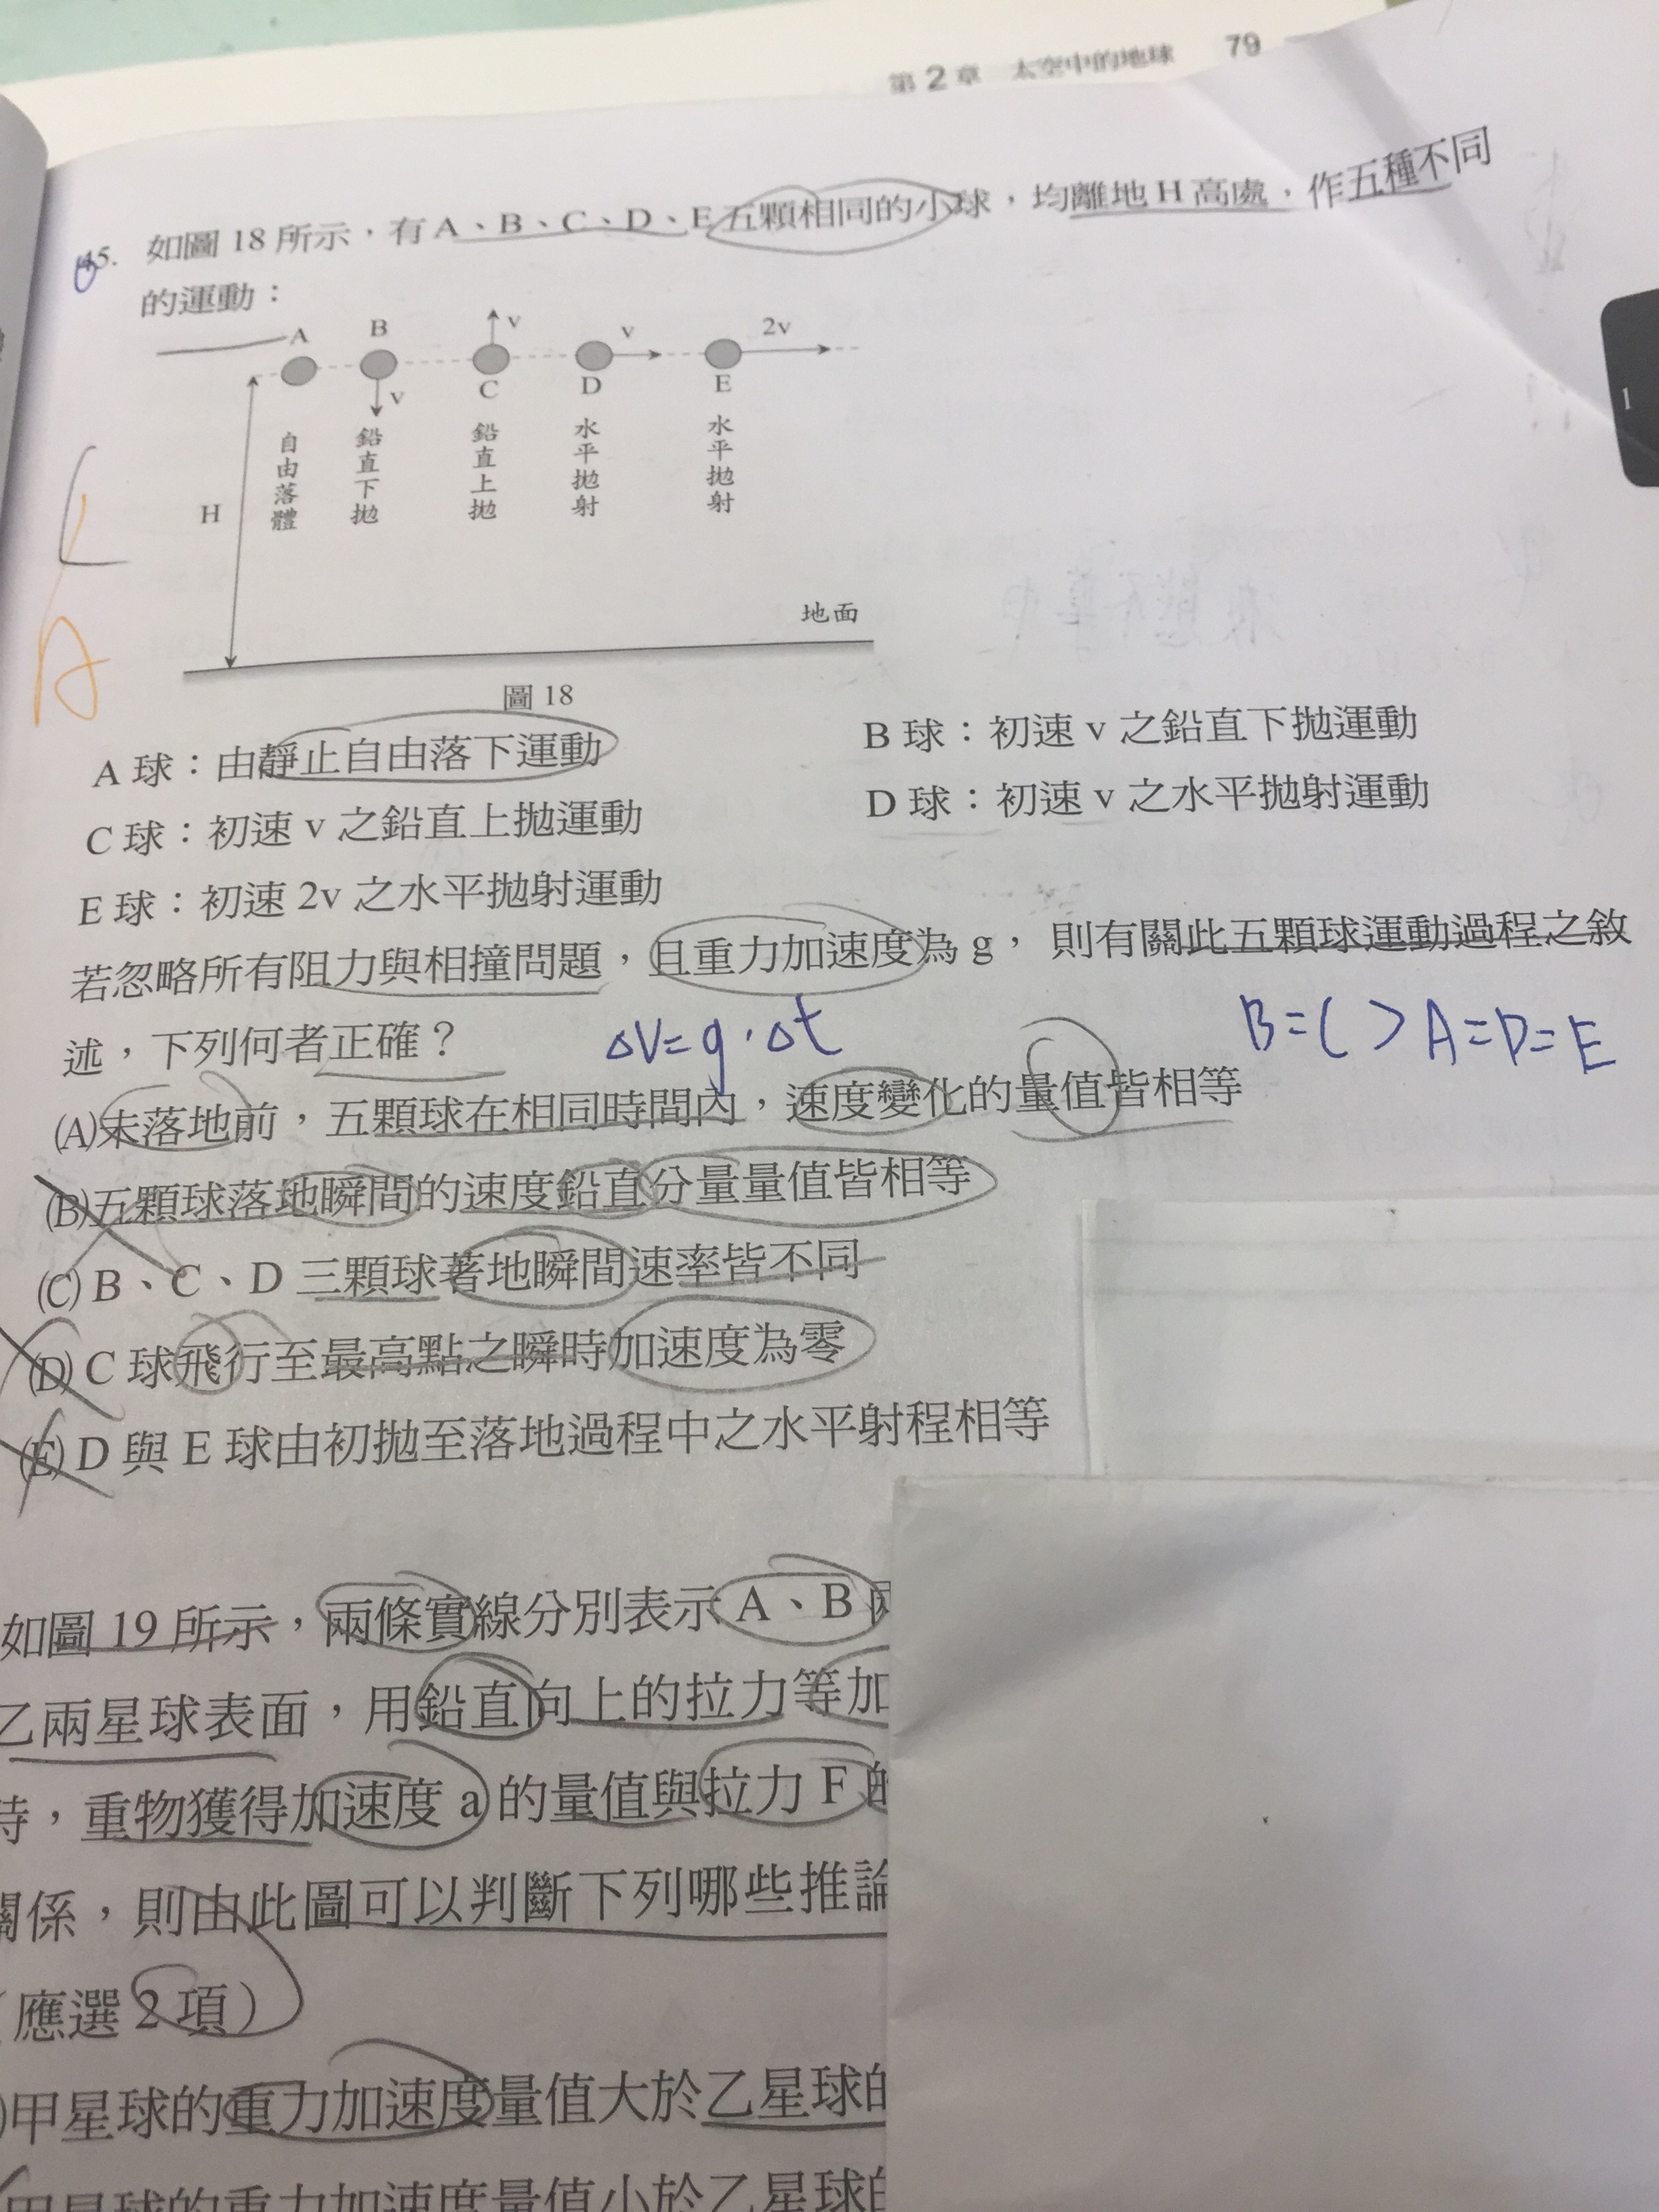 第2章 太空中的地球 79
45. 如圖 18 所示，有 A、B、C、D、E 五顆相同的小球，均離地 H 高處，作五種不同
的運動：
A B v v 2v
v C D E
自由落體 鉛直下拋 鉛直上拋 水平拋射 水平拋射
H
地面
圖 18
A
A 球：由靜止自由落下運動 B 球：初速 v 之鉛直下拋運動
C 球：初速 v 之鉛直上拋運動 D 球：初速 v 之水平拋射運動
E 球：初速 2v 之水平拋射運動
若忽略所有阻力與相撞問題，且重力加速度為 g， 則有關此五顆球運動過程之敘
述，下列何者正確？
ΔV=g·Δt
B=C>A=D=E
(A)未落地前，五顆球在相同時間內，速度變化的量值皆相等
(B)五顆球落地瞬間的速度鉛直分量量值皆相等
(C) B、C、D 三顆球著地瞬間速率皆不同
(D) C 球飛行至最高點之瞬時加速度為零
(E) D 與 E 球由初拋至落地過程中之水平射程相等
如圖 19 所示，兩條實線分別表示 A、B
乙兩星球表面，用鉛直向上的拉力等加
時，重物獲得加速度 a 的量值與拉力 F 的
關係，則由此圖可以判斷下列哪些推論
（應選 2 項）
)甲星球的重力加速度量值大於乙星球的
甲星球的重力加速度量值小於乙星球的
1